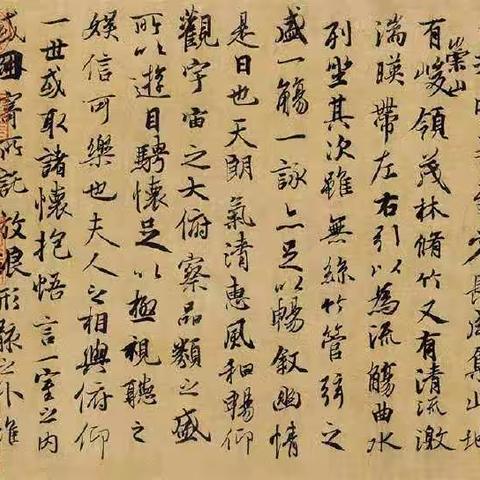 少長咸集此地
有崇山峻領茂林脩竹又有清流激
湍暎帶左右引以為流觴曲水
列坐其次雖無絲竹管弦之
盛一觴一詠亦足以暢敘幽情
是日也天朗氣清惠風和暢仰
觀宇宙之大俯察品類之盛
所以遊目騁懷足以極視聽之
娛信可樂也夫人之相與俯仰
一世或取諸懷抱悟言一室之內
或因寄所託放浪形骸之外雖